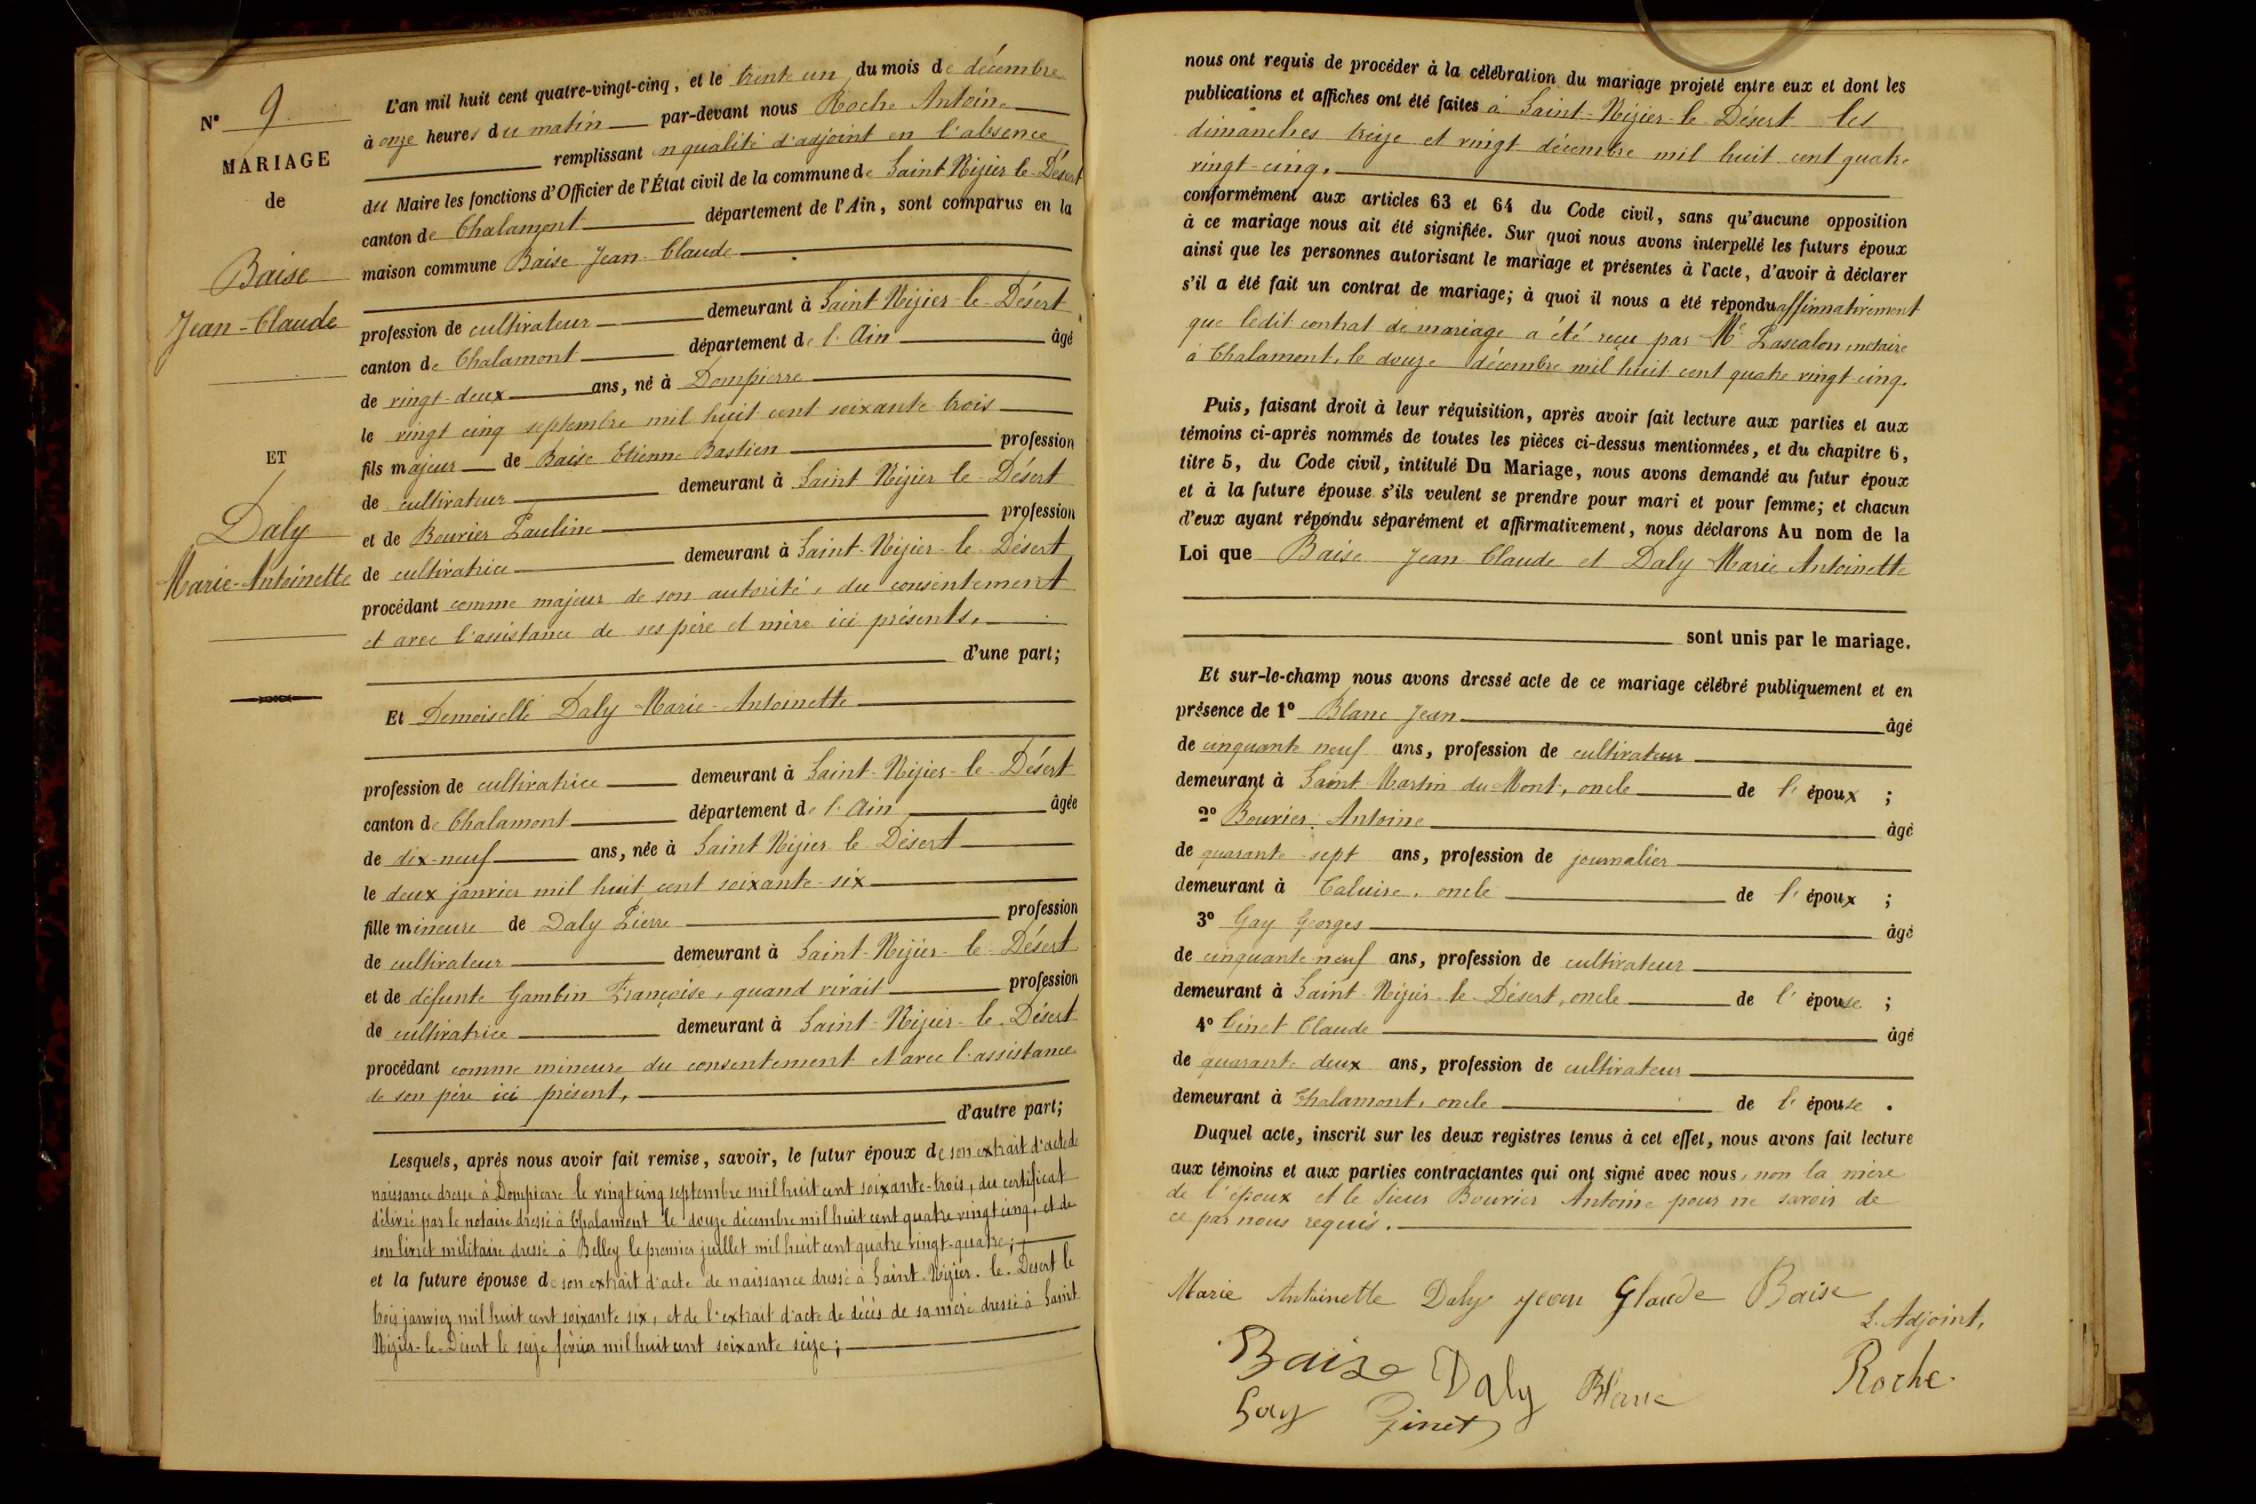 N° 9
MARIAGE
de
Baise
Jean-Claude
ET
Daly
Marie-Antoinette
L'an mil huit cent quatre-vingt-cinq, et le trente un du mois de décembre
à onze heures du matin par-devant nous Roche Antoine
remplissant en qualité d'adjoint en l'absence
du Maire les fonctions d'Officier de l'État civil de la commune de Saint Nizier le Désert
canton de Chalamont département de l'Ain, sont comparus en la
maison commune Baise Jean Claude
profession de cultivateur demeurant à Saint Nizier-le-Désert
canton de Chalamont département de l'Ain âgé
de vingt-deux ans, né à Dompierre
le vingt cinq septembre mil huit cent soixante trois
fils majeur de Baise Etienne Bastien profession
de cultivateur demeurant à Saint Nizier le Désert
et de Bouvier Pauline profession
de cultivatrice demeurant à Saint-Nizier-le-Désert
procédant comme majeur de son autorité, du consentement
et avec l'assistance de ses père et mère ici présents,
d'une part;
Et Demoiselle Daly Marie-Antoinette
profession de cultivatrice demeurant à Saint-Nizier-le-Désert
canton de Chalamont département de l'Ain âgée
de dix-neuf ans, née à Saint Nizier le Désert
le deux janvier mil huit cent soixante-six
fille mineure de Daly Pierre profession
de cultivateur demeurant à Saint-Nizier-le-Désert
et de défunte Gambin Françoise, quand vivait profession
de cultivatrice demeurant à Saint-Nizier-le-Désert
procédant comme mineure du consentement et avec l'assistance
de son père ici présent,
d'autre part;
Lesquels, après nous avoir fait remise, savoir, le futur époux de son extrait d'acte de
naissance dressé à Dompierre le vingt cinq septembre mil huit cent soixante-trois, du certificat
délivré par le notaire dressé à Chalamont le douze décembre mil huit cent quatre vingt cinq, et de
son livret militaire dressé à Belley le premier juillet mil huit cent quatre vingt-quatre;
et la future épouse de son extrait d'acte de naissance dressé à Saint-Nizier-le-Désert le
trois janvier mil huit cent soixante six, et de l'extrait d'acte de décès de sa mère dressé à Saint
Nizier-le-Désert le seize février mil huit cent soixante seize;
nous ont requis de procéder à la célébration du mariage projeté entre eux et dont les
publications et affiches ont été faites à Saint-Nizier-le-Désert les
dimanches treize et vingt décembre mil huit cent quatre
vingt-cinq.
conformément aux articles 63 et 64 du Code civil, sans qu'aucune opposition
à ce mariage nous ait été signifiée. Sur quoi nous avons interpellé les futurs époux
ainsi que les personnes autorisant le mariage et présentes à l'acte, d'avoir à déclarer
s'il a été fait un contrat de mariage; à quoi il nous a été répondu affirmativement
que ledit contrat de mariage a été reçu par Me Lascalon, notaire
à Chalamont, le douze décembre mil huit cent quatre vingt cinq.
Puis, faisant droit à leur réquisition, après avoir fait lecture aux parties et aux
témoins ci-après nommés de toutes les pièces ci-dessus mentionnées, et du chapitre 6,
titre 5, du Code civil, intitulé Du Mariage, nous avons demandé au futur époux
et à la future épouse s'ils veulent se prendre pour mari et pour femme; et chacun
d'eux ayant répondu séparément et affirmativement, nous déclarons Au nom de la
Loi que Baise Jean Claude et Daly Marie Antoinette
sont unis par le mariage.
Et sur-le-champ nous avons dressé acte de ce mariage célébré publiquement et en
présence de 1° Blanc Jean âgé
de cinquante neuf ans, profession de cultivateur
demeurant à Saint Martin du Mont, oncle de l'époux ;
2° Bouvier Antoine âgé
de quarante-sept ans, profession de journalier
demeurant à Caluire, oncle de l'époux ;
3° Gay Georges âgé
de cinquante neuf ans, profession de cultivateur
demeurant à Saint-Nizier-le-Désert, oncle de l'épouse ;
4° Ginet Claude âgé
de quarante deux ans, profession de cultivateur
demeurant à Chalamont, oncle de l'épouse .
Duquel acte, inscrit sur les deux registres tenus à cet effet, nous avons fait lecture
aux témoins et aux parties contractantes qui ont signé avec nous, non la mère
de l'époux et le sieur Bouvier Antoine pour ne savoir de
ce par nous requis.
Marie Antoinette Daly Jean Glaude Baise
L'Adjoint,
Baise Daly Blanc Roche
Gay Ginet